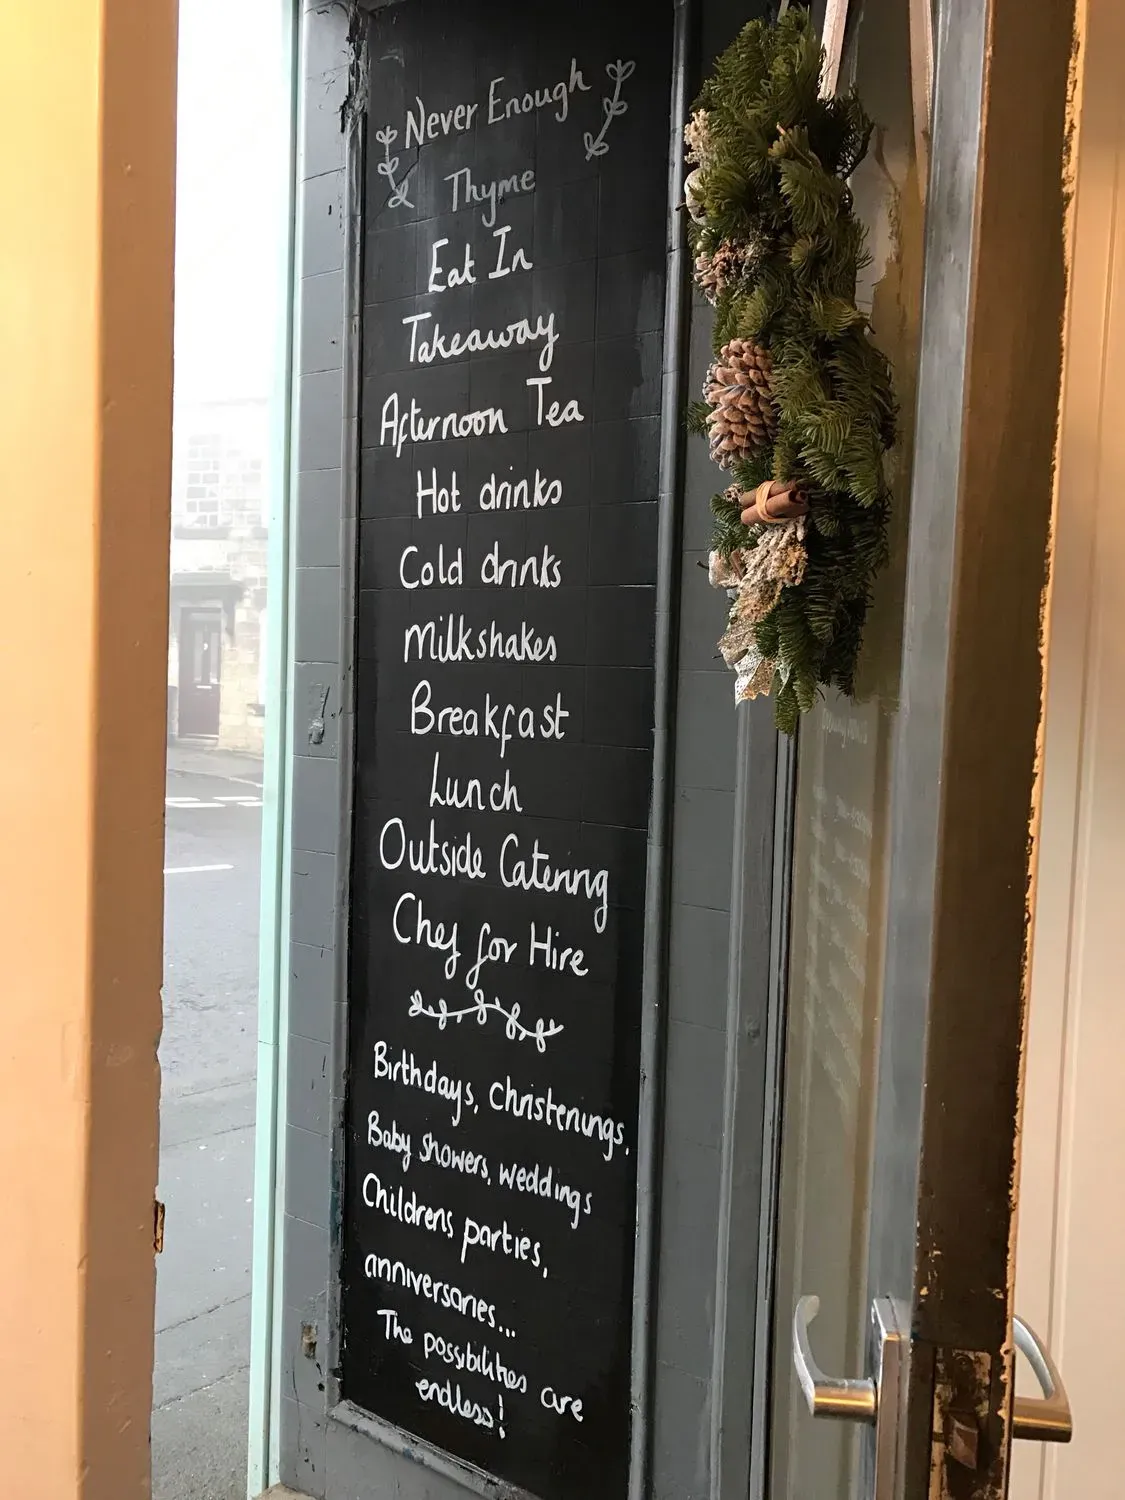 Never Enough
Thyme
Eat In
Takeaway
Afternoon Tea
Hot drinks
Cold drinks
Milkshakes
Breakfast
Lunch
Outside Catering
Chef for Hire
Birthdays, christenings,
Baby showers, weddings
Childrens parties,
anniversaries...
The possibilities are
endless!